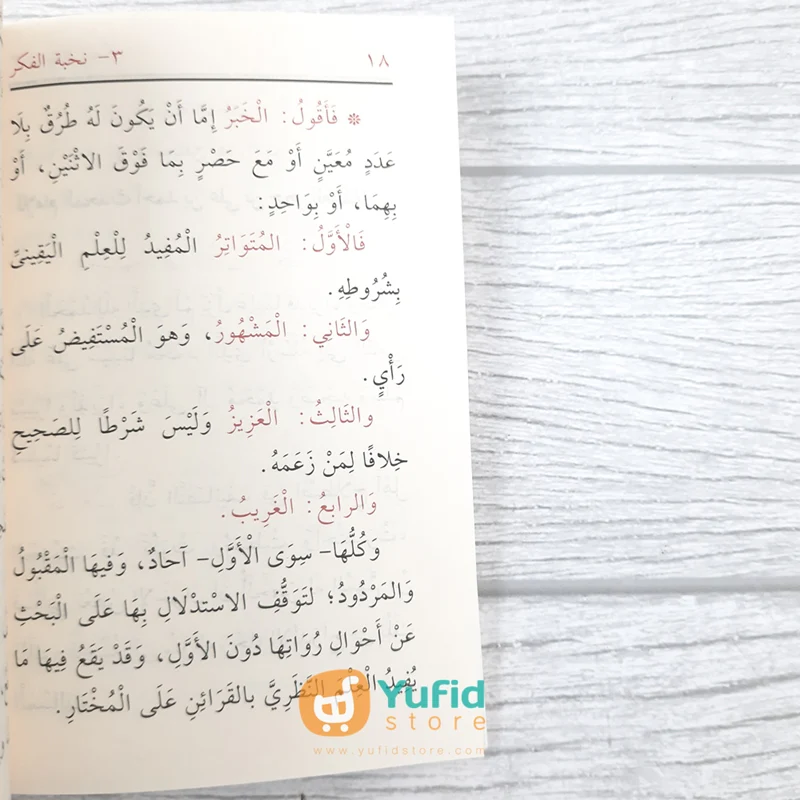 ١٨ ٣- نخبة الفكر
* فَأَقُولُ: الْخَبَرُ إِمَّا أَنْ يَكُونَ لَهُ طُرُقٌ بِلَا
عَدَدٍ مُعَيَّنٍ أَوْ مَعَ حَصْرٍ بِمَا فَوْقَ الاثْنَيْنِ، أَوْ
بِهِمَا، أَوْ بِوَاحِدٍ:
فَالْأَوَّلُ: المُتَوَاتِرُ الْمُفِيدُ لِلْعِلْمِ الْيَقِينيِّ
بِشُرُوطِهِ.
وَالثَانِي: الْمَشْهُورُ، وَهوَ الْمُسْتَفِيضُ عَلَى
رَأْيٍ.
والثَالِثُ: الْعَزِيزُ وَلَيْسَ شَرْطًا لِلصَحِيحِ
خِلافًا لِمَنْ زَعَمَهُ.
وَالرابعُ: الْغَرِيبُ.
وَكُلُّهَا- سِوَى الْأَوَّلِ- آحَادٌ، وَفيهَا الْمَقْبُولُ
وَالمَرْدُودُ؛ لتَوَقُّفِ الاسْتدْلَالِ بِهَا عَلَى الْبَحْثِ
عَنْ أَحْوَالِ رُوَاتِهَا دُونَ الأَوَّلِ، وَقَدْ يَقَعُ فِيهَا مَا
يُفِيدُ الْعِلْمَ النَّظَرِيَّ بالقَرَائِنِ عَلَى الْمُخْتَارِ.
Yufid
store
www.yufidstore.com